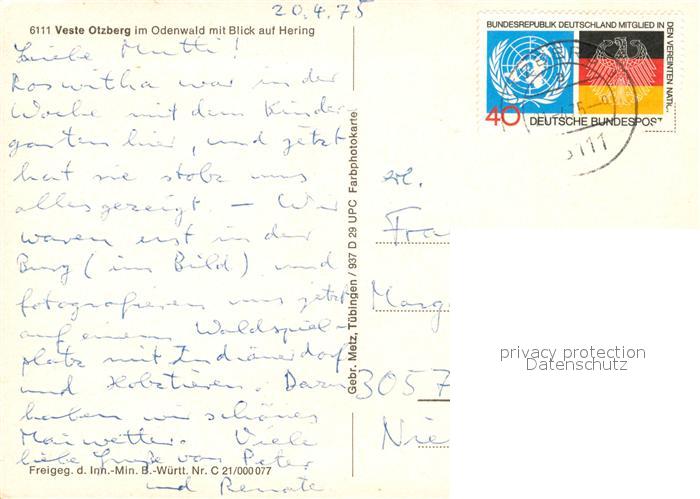 20.4.75
6111 Veste Otzberg im Odenwald mit Blick auf Hering
Liebe Mutti!
Roswitha war in der
Woche mit dem Kinder
garten hier, und jetzt
hat sie stolz uns
alles gezeigt. – Wir
waren erst in der
Burg (im Bild) und
fotografieren uns jetzt
auf einem Waldspiel-
platz mit Indianerdorf
und Holztieren. Dazu
haben wir schönes
Maiwetter. Viele
liebe Grüße von Peter
und Renate
Freigeg. d. Inn.-Min. B.-Württ. Nr. C 21/000077
Gebr. Metz, Tübingen / 937 D 29 UPC Farbphotokarte
BUNDESREPUBLIK DEUTSCHLAND MITGLIED IN DEN VEREINTEN NATI
40
DEUTSCHE BUNDESPOST
6111
Fra
Marg
3057
Nie
privacy protection
Datenschutz